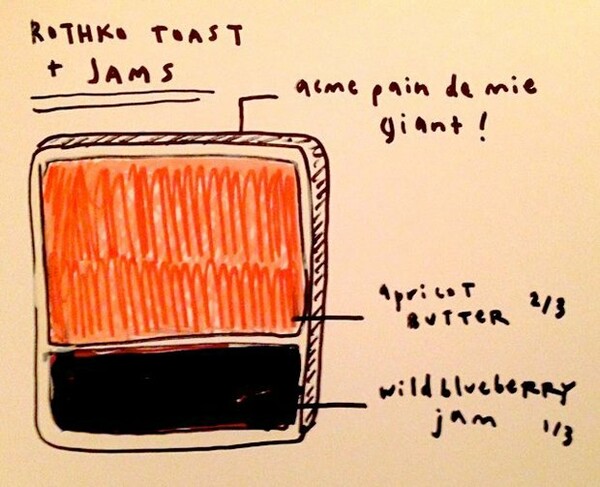 ROTHKO TOAST
+ JAMS
acme pain de mie
giant!
apricot
BUTTER 2/3
wild blueberry
jam 1/3